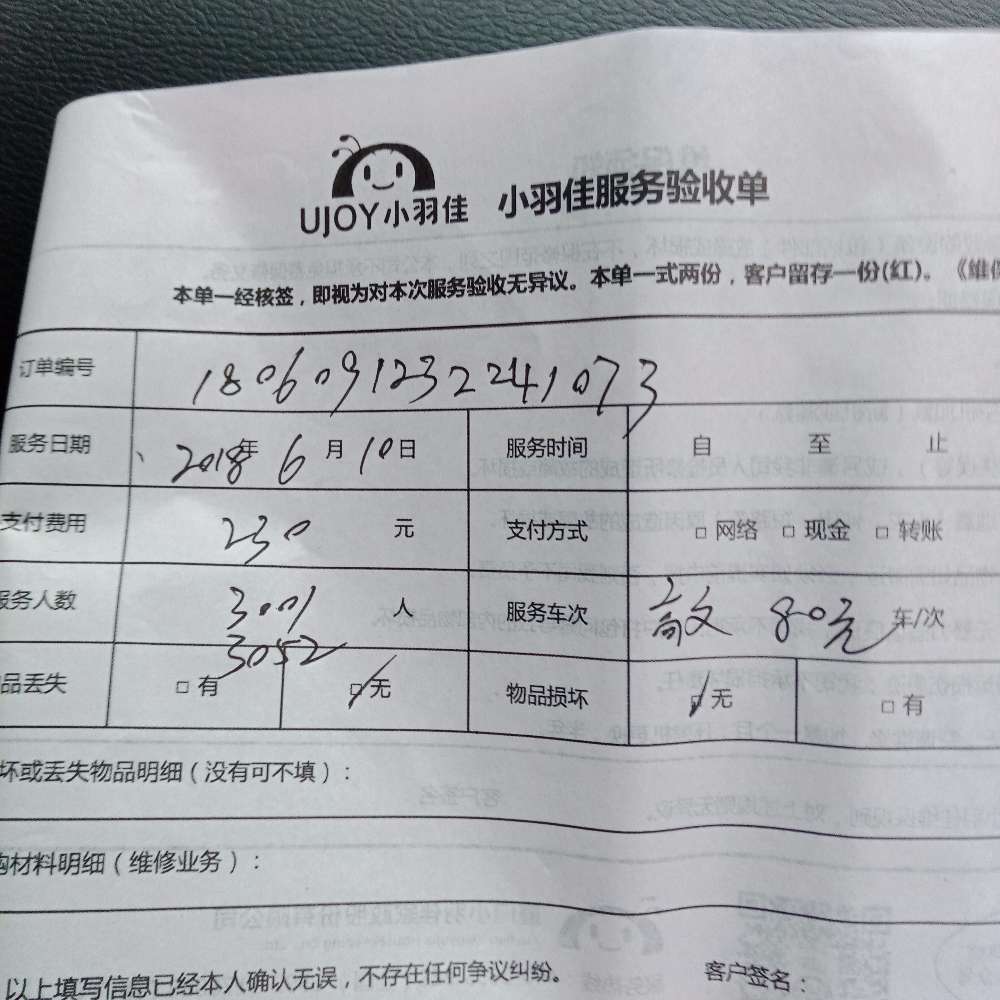 UJOY小羽佳 小羽佳服务验收单
本单一经核签，即视为对本次服务验收无异议。本单一式两份，客户留存一份(红)。《维保
订单编号 1806091232241073
服务日期 2018年 6 月 10 日 服务时间 自 至 止
支付费用 230 元 支付方式 □ 网络 □ 现金 □ 转账
服务人数 3001 人 服务车次 80元 车/次
3052
品丢失 □ 有 □ 无 物品损坏 □ 无 □ 有
坏或丢失物品明细（没有可不填）：
购材料明细（维修业务）：
以上填写信息已经本人确认无误，不存在任何争议纠纷。 客户签名：